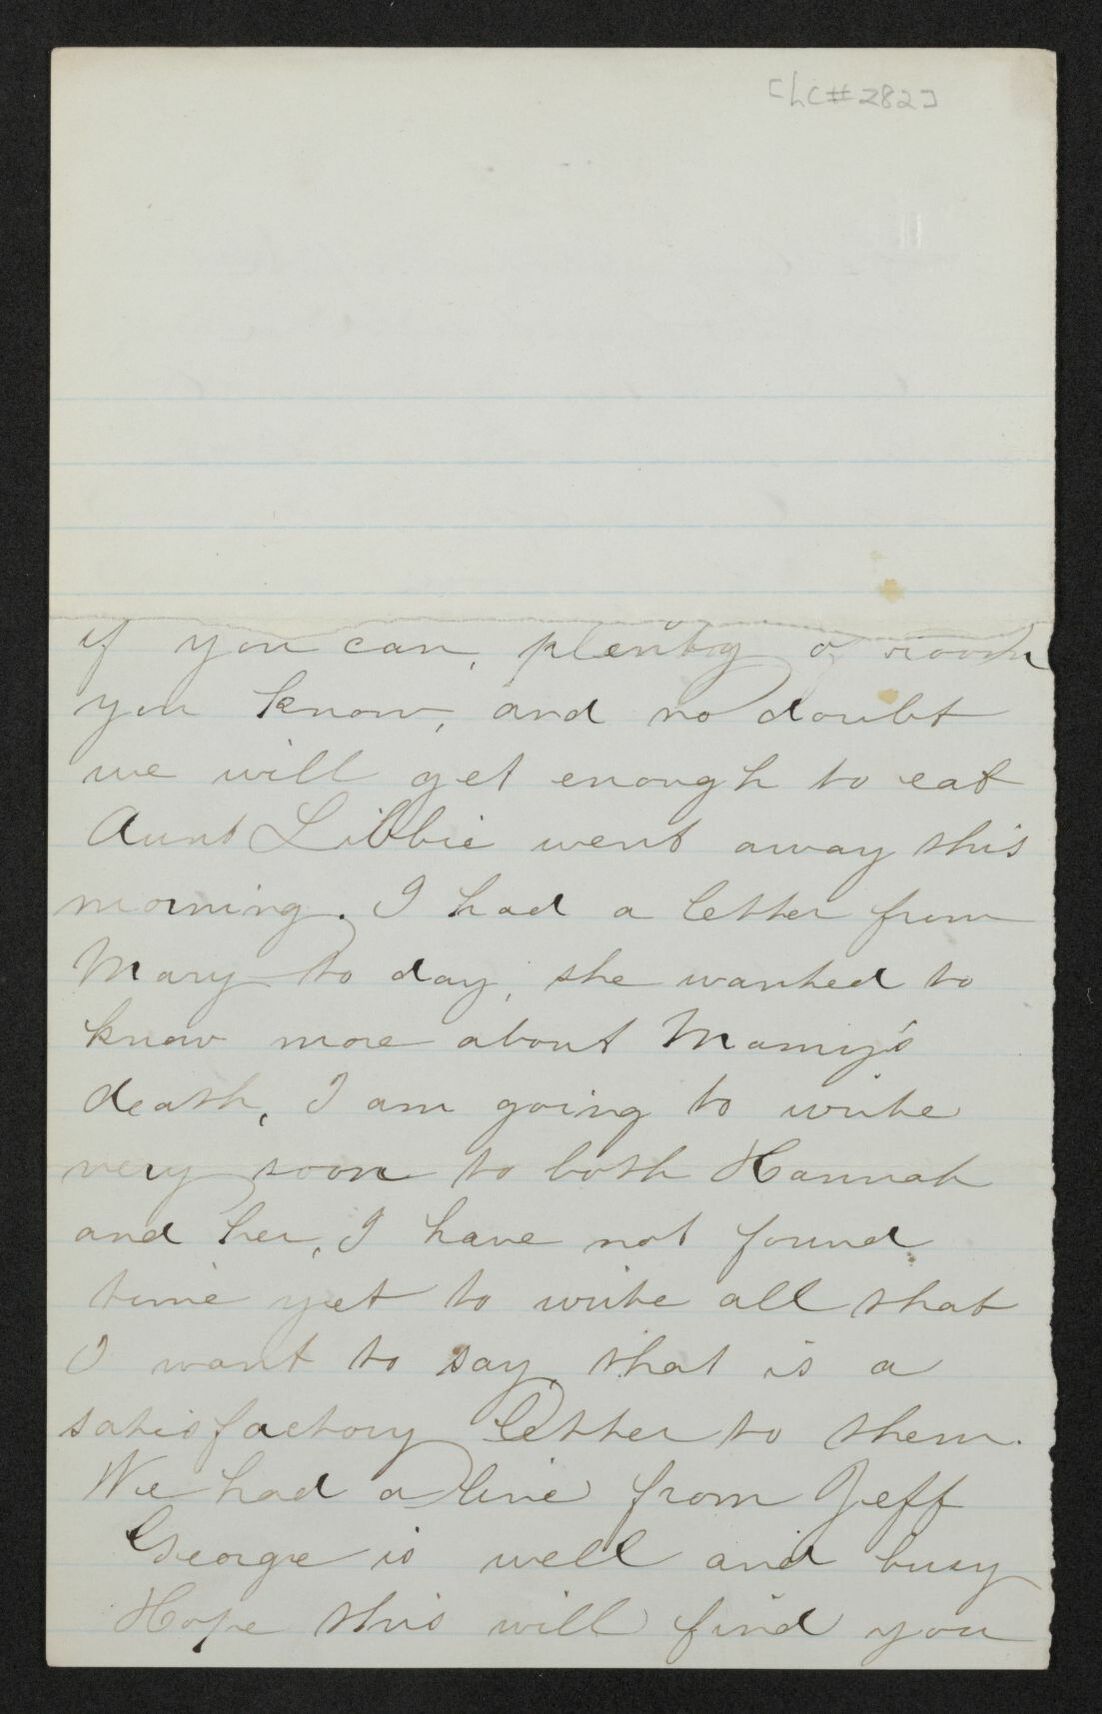 [LC#282]
if you can, plenty of room
you know, and no doubt
we will get enough to eat
Aunt Libbie went away this
morning. I had a letter from
Mary to day, she wanted to
know more about Mamy's
death, I am going to write
very soon to both Hannah
and her, I have not found
time yet to write all that
I want to say, that is a
satisfactory letter to them.
We had a line from Jeff
George is well and busy
Hope this will find you